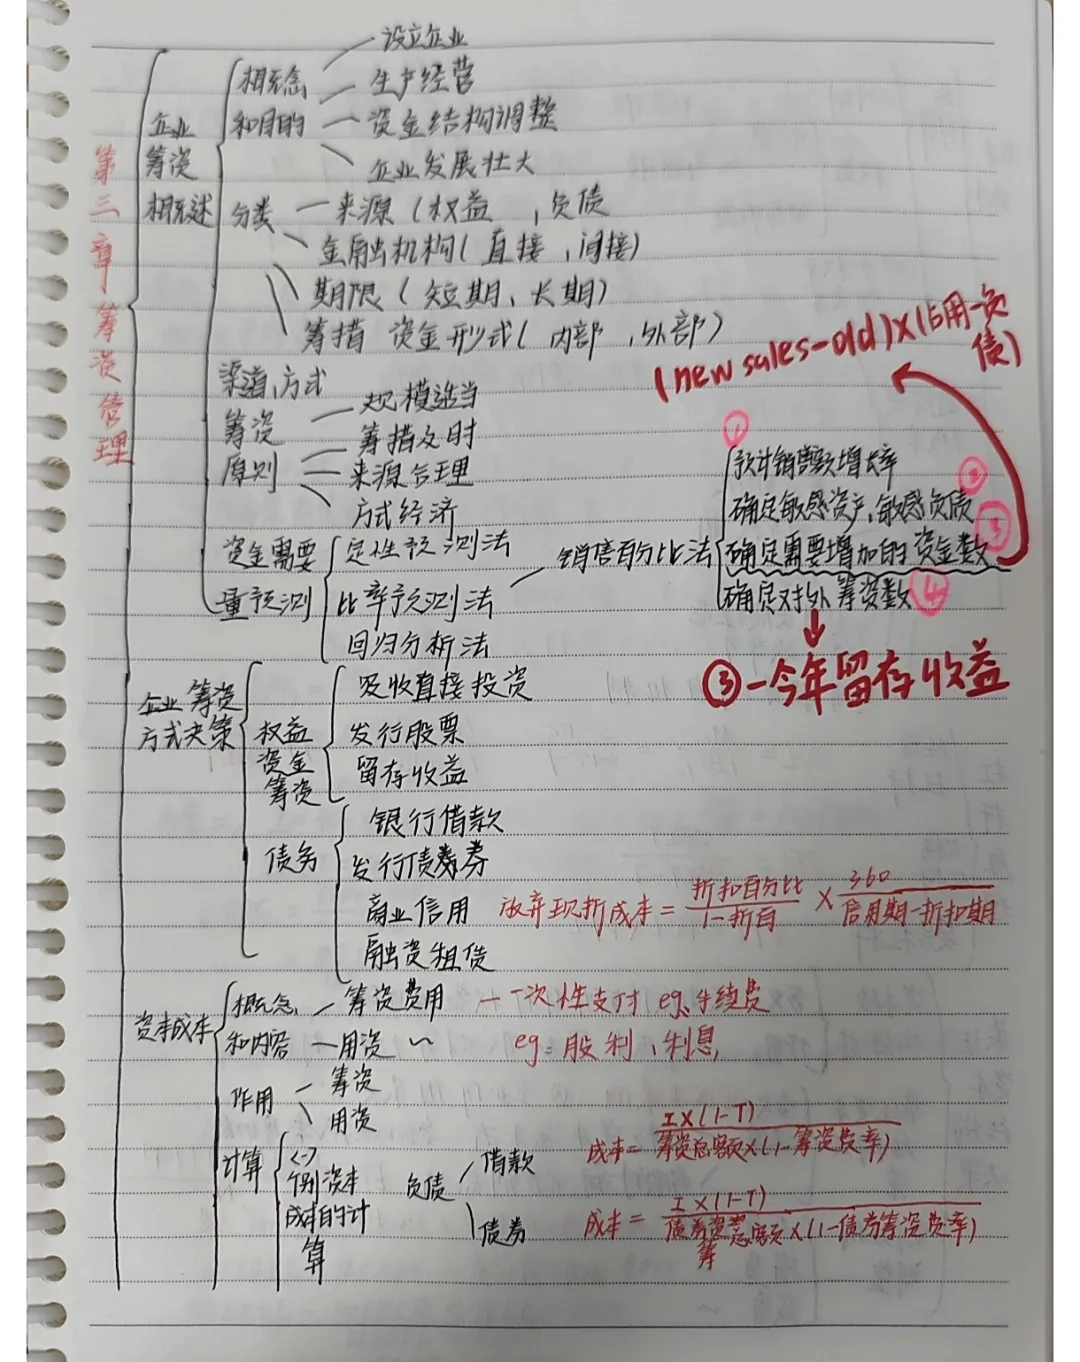 第三章筹资管理
企业
筹资
概述
概念
和目的
设立企业
生产经营
资金结构调整
企业发展壮大
分类
来源(权益,负债
金融机构(直接,间接)
期限(短期、长期)
筹措 资金形式(内部,外部)
渠道,方式
筹资
原则
规模适当
筹措及时
来源合理
方式经济
资金需要
量预测
定性预测法
比率预测法
回归分析法
销售百分比法
①
预计销售额增长率
②
确定敏感资产,敏感负债
③
确定需要增加的资金数
确定对外筹资数④
(new sales-old)×(占用-负
债)
③-今年留存收益
企业筹资
方式决策
权益
资金
筹资
吸收直接投资
发行股票
留存收益
债务
银行借款
发行债券
商业信用
放弃现折成本=折扣百分比/1-折百×360/信用期-折扣期
融资租赁
资本成本
概念
和内容
筹资费用 一次性支付 eg、手续费
用资〜 eg:股利、利息
作用
筹资
用资
计算
(一)
个别资本
成本的计
算
负债
借款
成本=I×(1-T)/筹资总额×(1-筹资费率)
债券
成本=I×(1-T)/债券筹资总额×(1-债券筹资费率)